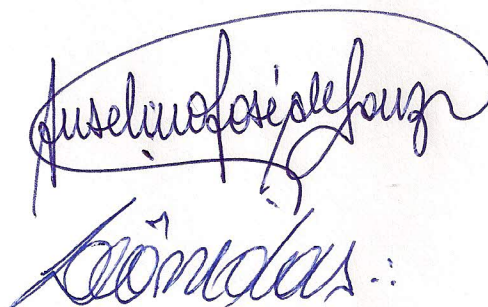 Anselmo José de Souza
Leônidas.: